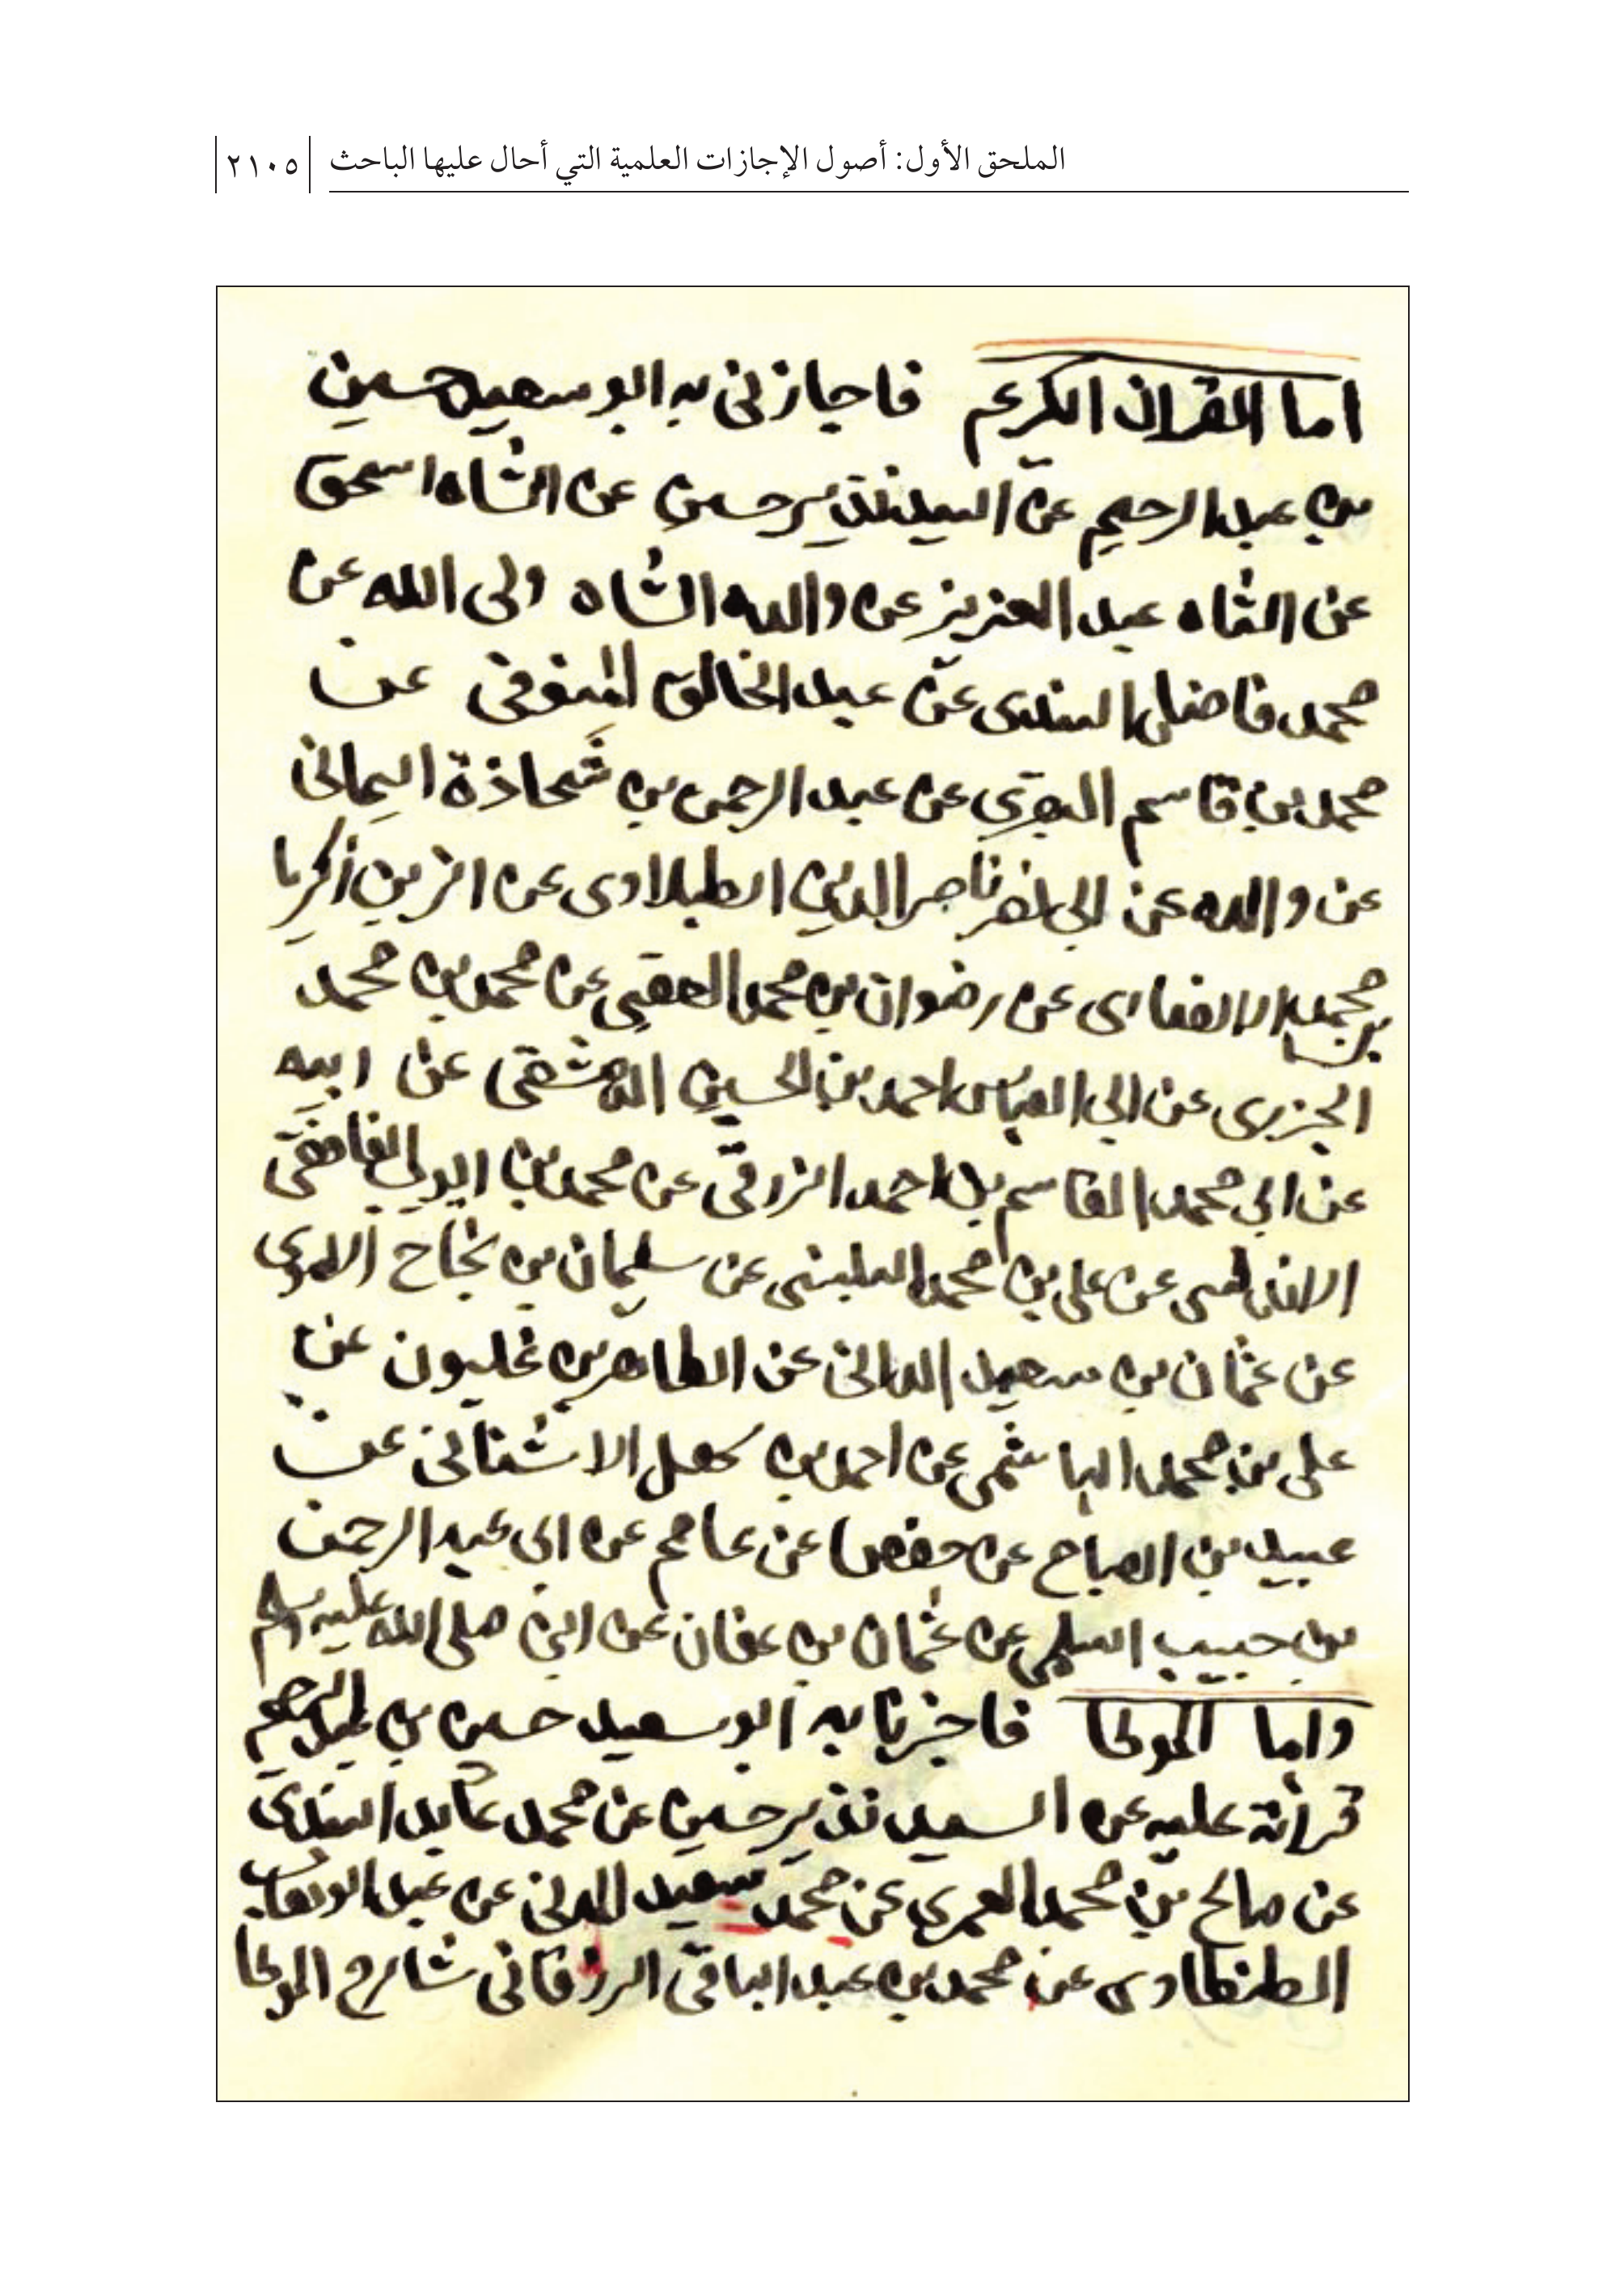 الملحق الأول: أصول الإجازات العلمية التي أحال عليها الباحث ٢١٠٥
اما القران الكريم فاجازني به ابو سعيد حسين
بن عبد الرحيم عن السيد نذير حسين عن الشاه اسحق
عن الشاه عبد العزيز عن والده الشاه ولى الله عن
محمد فاضل السندى عن عبد الخالق المنوفى عن
محمد بن قاسم البقرى عن عبد الرحمن بن شحاذة اليمانى
عن والده عن ابى نصر ناصر الدين الطبلاوى عن الزين زكريا
بن محمد الانصارى عن رضوان بن محمد العقبى عن محمد بن محمد
الجزرى عن ابى العباس احمد بن الحسين الدمشقى عن ابيه
عن ابي محمد القاسم بن احمد الزرقى عن محمد بن ايوب الغافقى
الاندلسى عن على بن محمد البلنسى عن سليمان بن نجاح الاموى
عن عثمان بن سعيد الدانى عن الطاهر بن غلبون عن
على بن محمد الهاشمى عن احمد بن سهل الاشنانى عن
عبيد بن الصباح عن حفص عن عاصم عن ابى عبد الرحمن
بن حبيب السلمى عن عثمان بن عفان عن النبى صلى الله عليه وسلم
واما الموطا فاجزنا به ابو سعيد حسين بن عبد الرحيم
قرائة عليه عن السيد نذير حسين عن محمد عابد السندى
عن صالح بن محمد العمرى عن محمد سعيد المدنى عن عبد الوهاب
الطنطاوى عن محمد بن عبد الباقى الرزقانى شارح الموطا